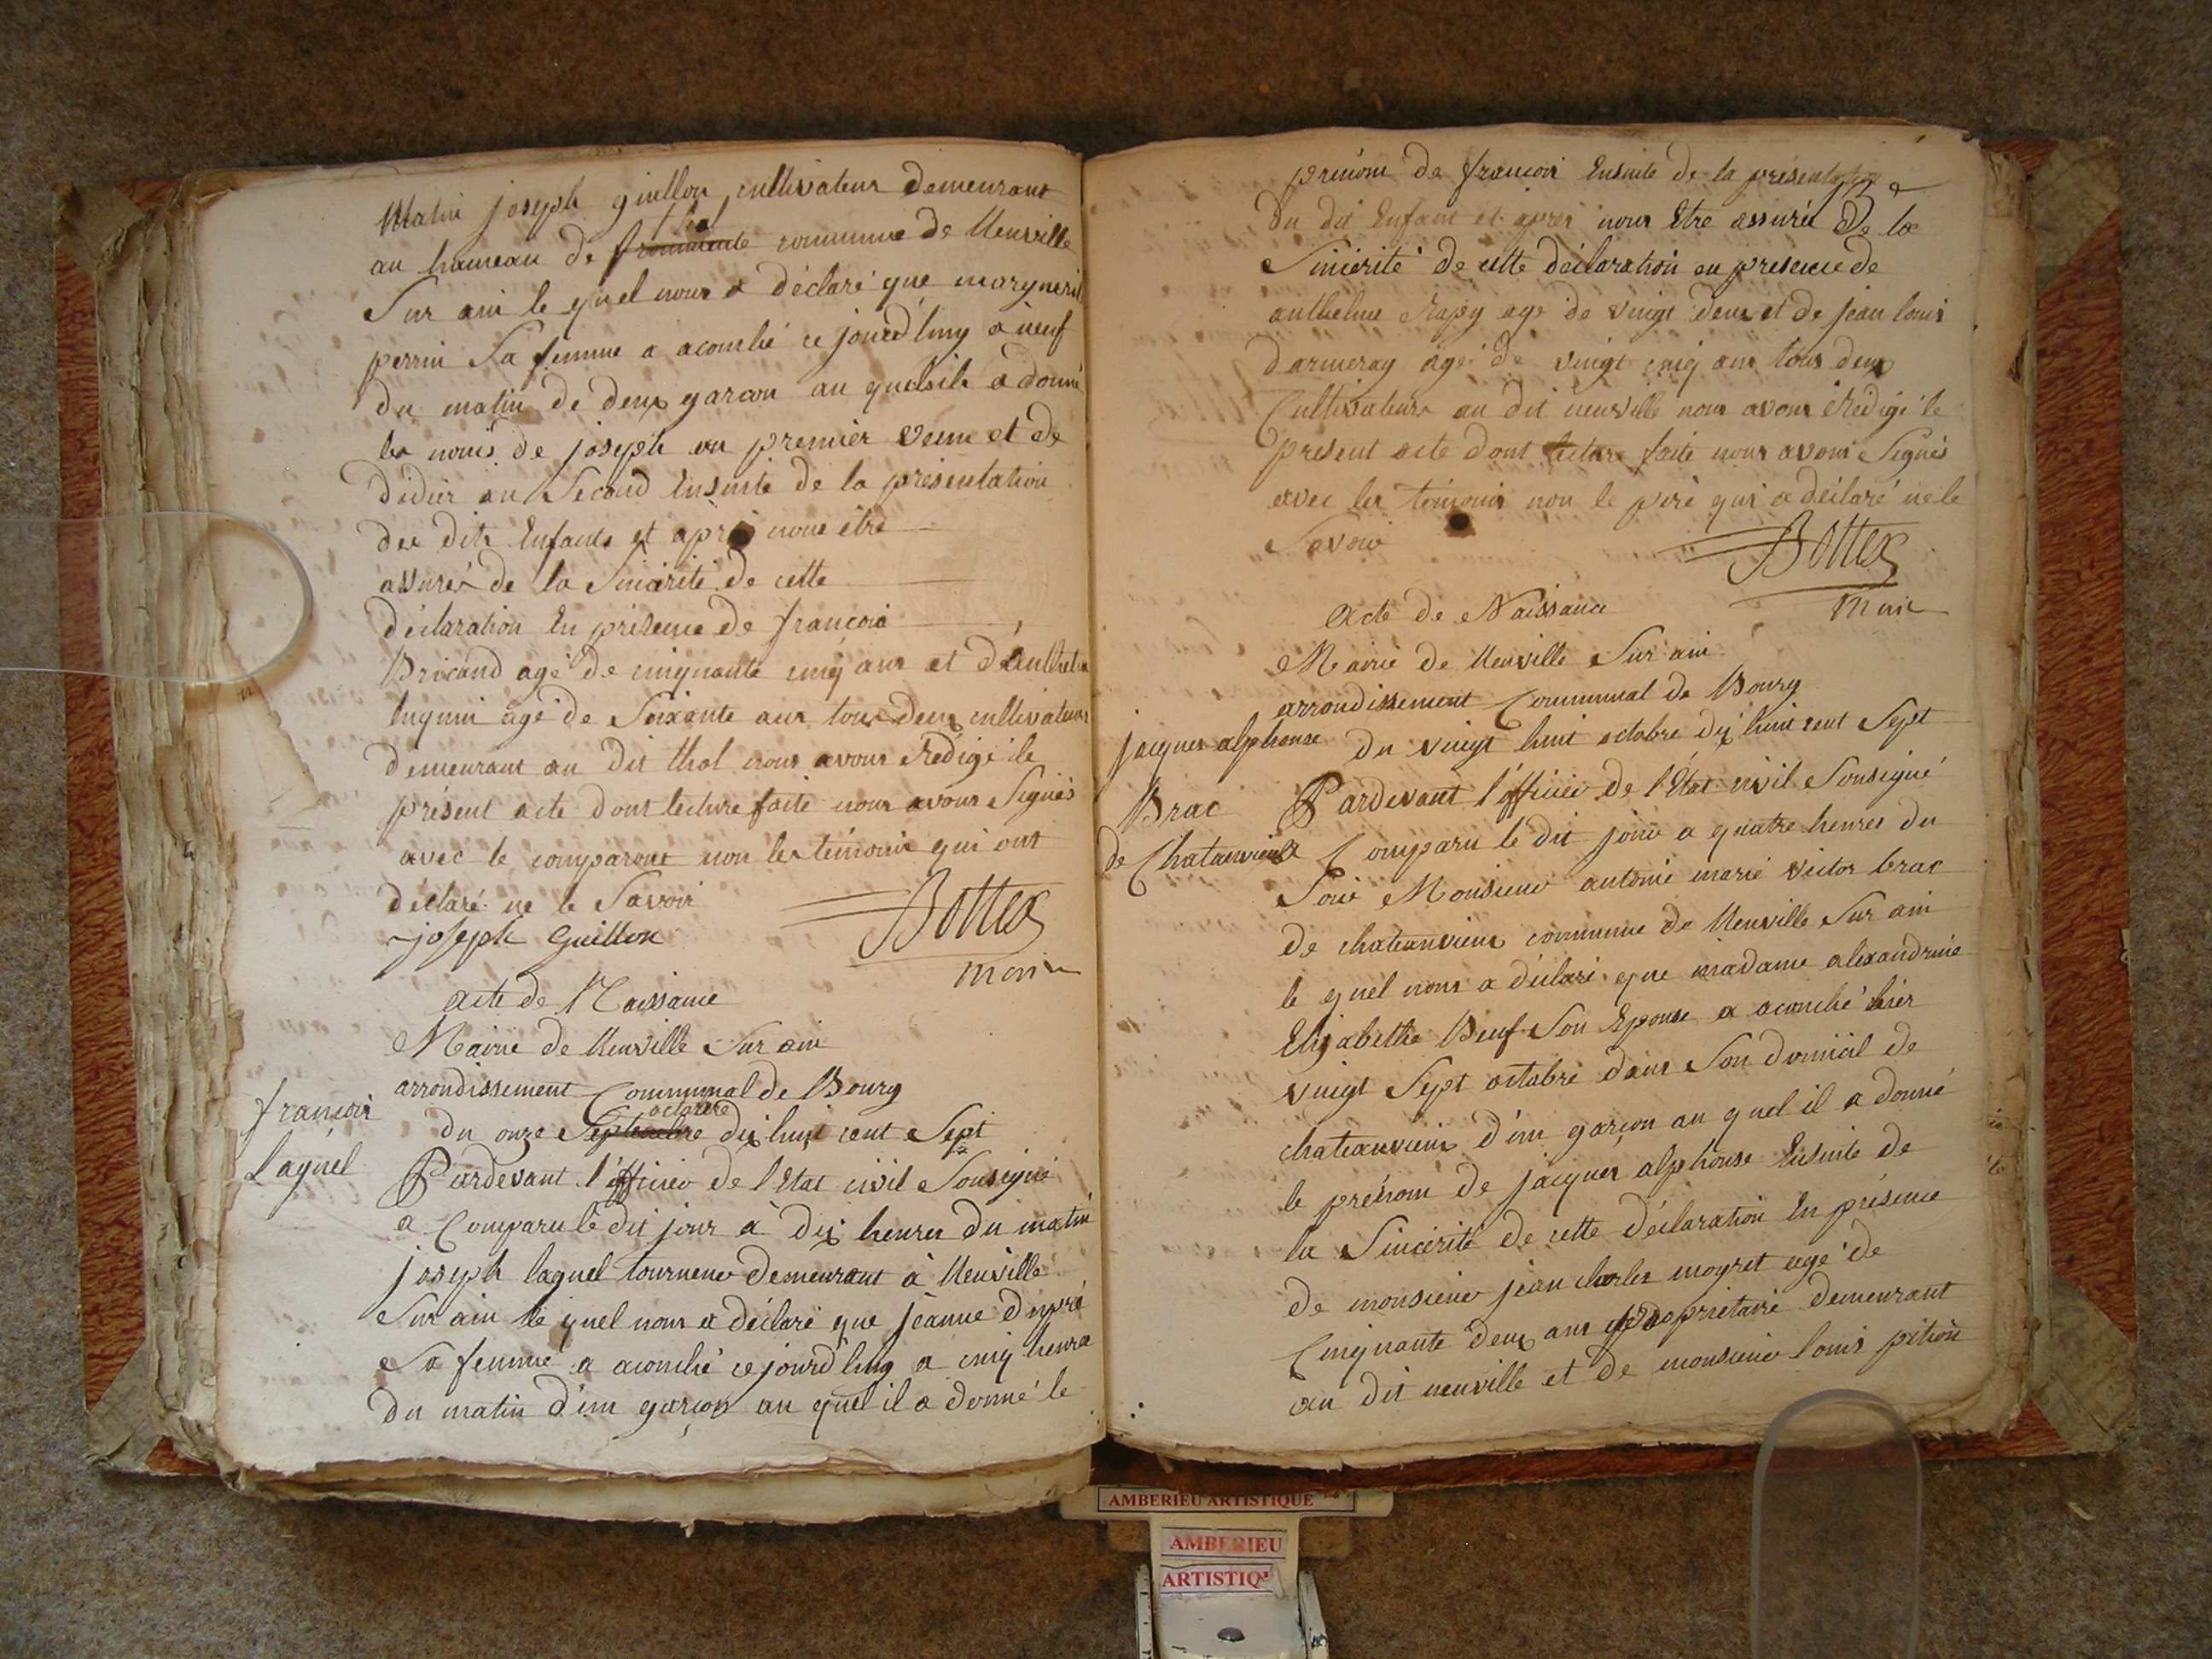 Matin joseph guillon cultivateur demeurant
thol
au hameau de fromente commune de Neuville
Sur ain le quel nous a déclaré que marguerit
perrin Sa femme a acouché ce jourd'huy a neuf
du matin de deux garcon au quelsils a donné
les noms de joseph au premier venu et de
didier au Second Ensuite de la présentation
des dits Enfants et après nous être
assurés de la Sincérité de cette
déclaration En présence de francois
Brivand agé de cinquante cinq ans et d'anthelm
agé de Soixante ans tous deux cultivateurs
demeurant au dit thol nous avons Rédigé le
présent acte dont lecture faite nous avons Signés
avec le comparant non les témoins qui ont
déclaré ne le Savoir
joseph Guillon
Bottex
maire
acte de Naissance
Mairie de Neuville Sur ain
arrondissement Communal de Bourg
françois
octobre
du onze Septembre dix huit cent Sept
Laguel
Pardevant l'officier de l'Etat civil Sousigné
a Comparu le dit jour à dix heures du matin
joseph laguel tourneur demeurant à Neuville
Sur ain le quel nous a déclaré que jeanne dupré
Sa femme a acouché ce jourd'huy a cinq heures
du matin d'un garçon au quel il a donné le
prénom de francois Ensuite de la présentation
du dit Enfant et après nous Etre assurés de la
Sincérité de cette déclaration en présence de
anthelme Rapy agé de vingt deux et de jean louis
darmeray agé de vingt cinq ans tous deux
Cultivateurs au dit neuville nous avons Rédigé le
présent acte dont lecture faite nous avons Signés
avec les témoins non le père qui a déclaré ne le
Savoir
Bottex
maire
acte de Naissance
Mairie de Neuville Sur ain
arrondissement Communal de Bourg
jacques alphonse
du vingt huit octobre dix huit cent Sept
Brac
Pardevant l'officier de l'Etat civil Sousigné
de Chateauvieux
a Comparu le dit jour a quatre heures du
Soir Monsieur antoine marie victor brac
de chateauvieux commune de Neuville Sur ain
le quel nous a déclaré que madame alexandrine
Elizabethe Beuf Son Epouse a acouché hier
vingt Sept octobre dans Son domicil de
chateauvieux d'un garçon au quel il a donné
le prénom de jacques alphonse Ensuite de
la Sincérité de cette déclaration En présence
de monsieur jean charles moyret agé de
Cinquante deux ans propriétaire demeurant
au dit neuville et de monsieur louis pition
AMBERIEU ARTISTIQUE
AMBERIEU
ARTISTIQ